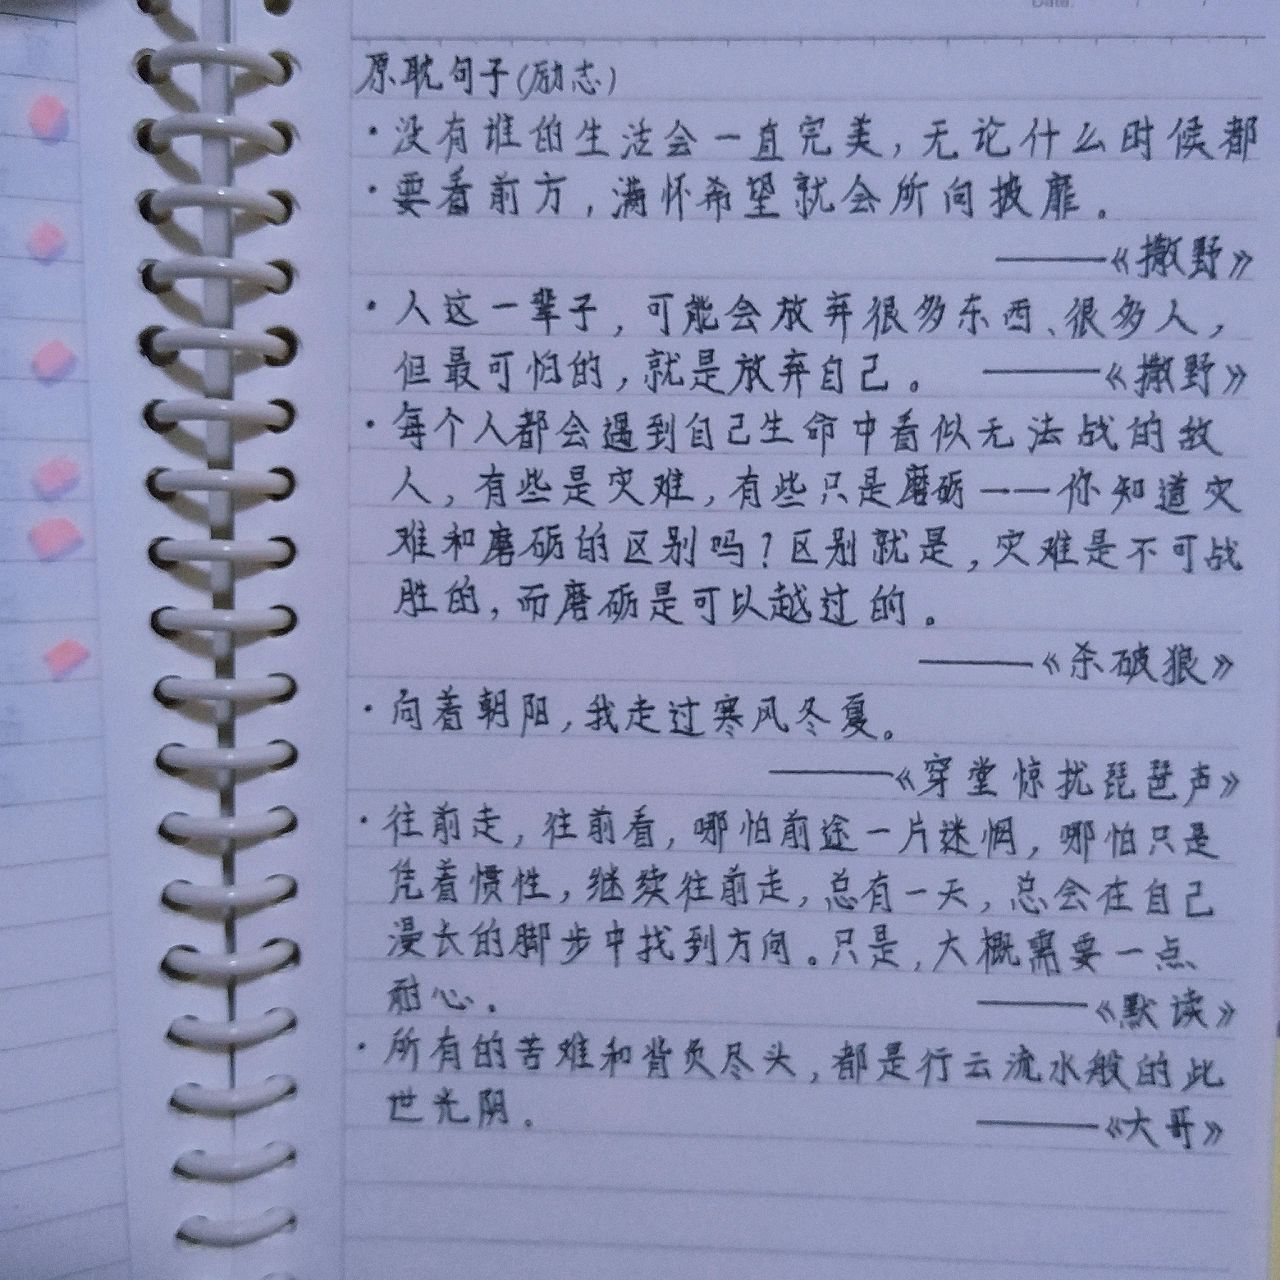 Date: / /
原耽句子(励志)
·没有谁的生活会一直完美,无论什么时候都
·要看前方,满怀希望就会所向披靡。
——《撒野》
·人这一辈子,可能会放弃很多东西、很多人,
但最可怕的,就是放弃自己。 ——《撒野》
·每个人都会遇到自己生命中看似无法战的敌
人,有些是灾难,有些只是磨砺——你知道灾
难和磨砺的区别吗?区别就是,灾难是不可战
胜的,而磨砺是可以越过的。
——《杀破狼》
·向着朝阳,我走过寒风冬夏。
——《穿堂惊扰琵琶声》
·往前走,往前看,哪怕前途一片迷惘,哪怕只是
凭着惯性,继续往前走,总有一天,总会在自己
漫长的脚步中找到方向。只是,大概需要一点
耐心。 ——《默读》
·所有的苦难和背负尽头,都是行云流水般的此
世光阴。 ——《大哥》